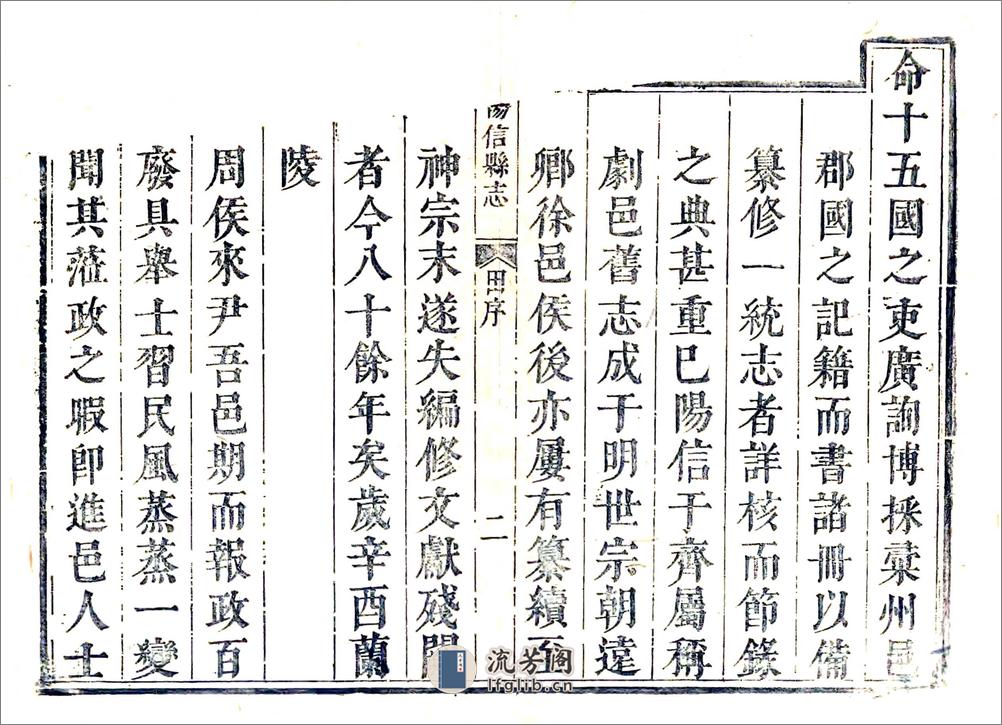 命十五國之吏廣詢博採彙州邑
郡國之記籍而書諸冊以備
纂修一統志者詳核而節錄
之典甚重巳陽信于齊屬稱
劇邑舊志成于明世宗朝遠
卿徐邑侯後亦屢有纂續至
陽信縣志 田序 二
神宗末遂失編修文獻殘闕
者今八十餘年矣歲辛酉蘭
陵
周侯來尹吾邑期而報政百
廢具舉士習民風蒸蒸一變
聞其蒞政之暇即進邑人士
流芳阁
lfglib.cn